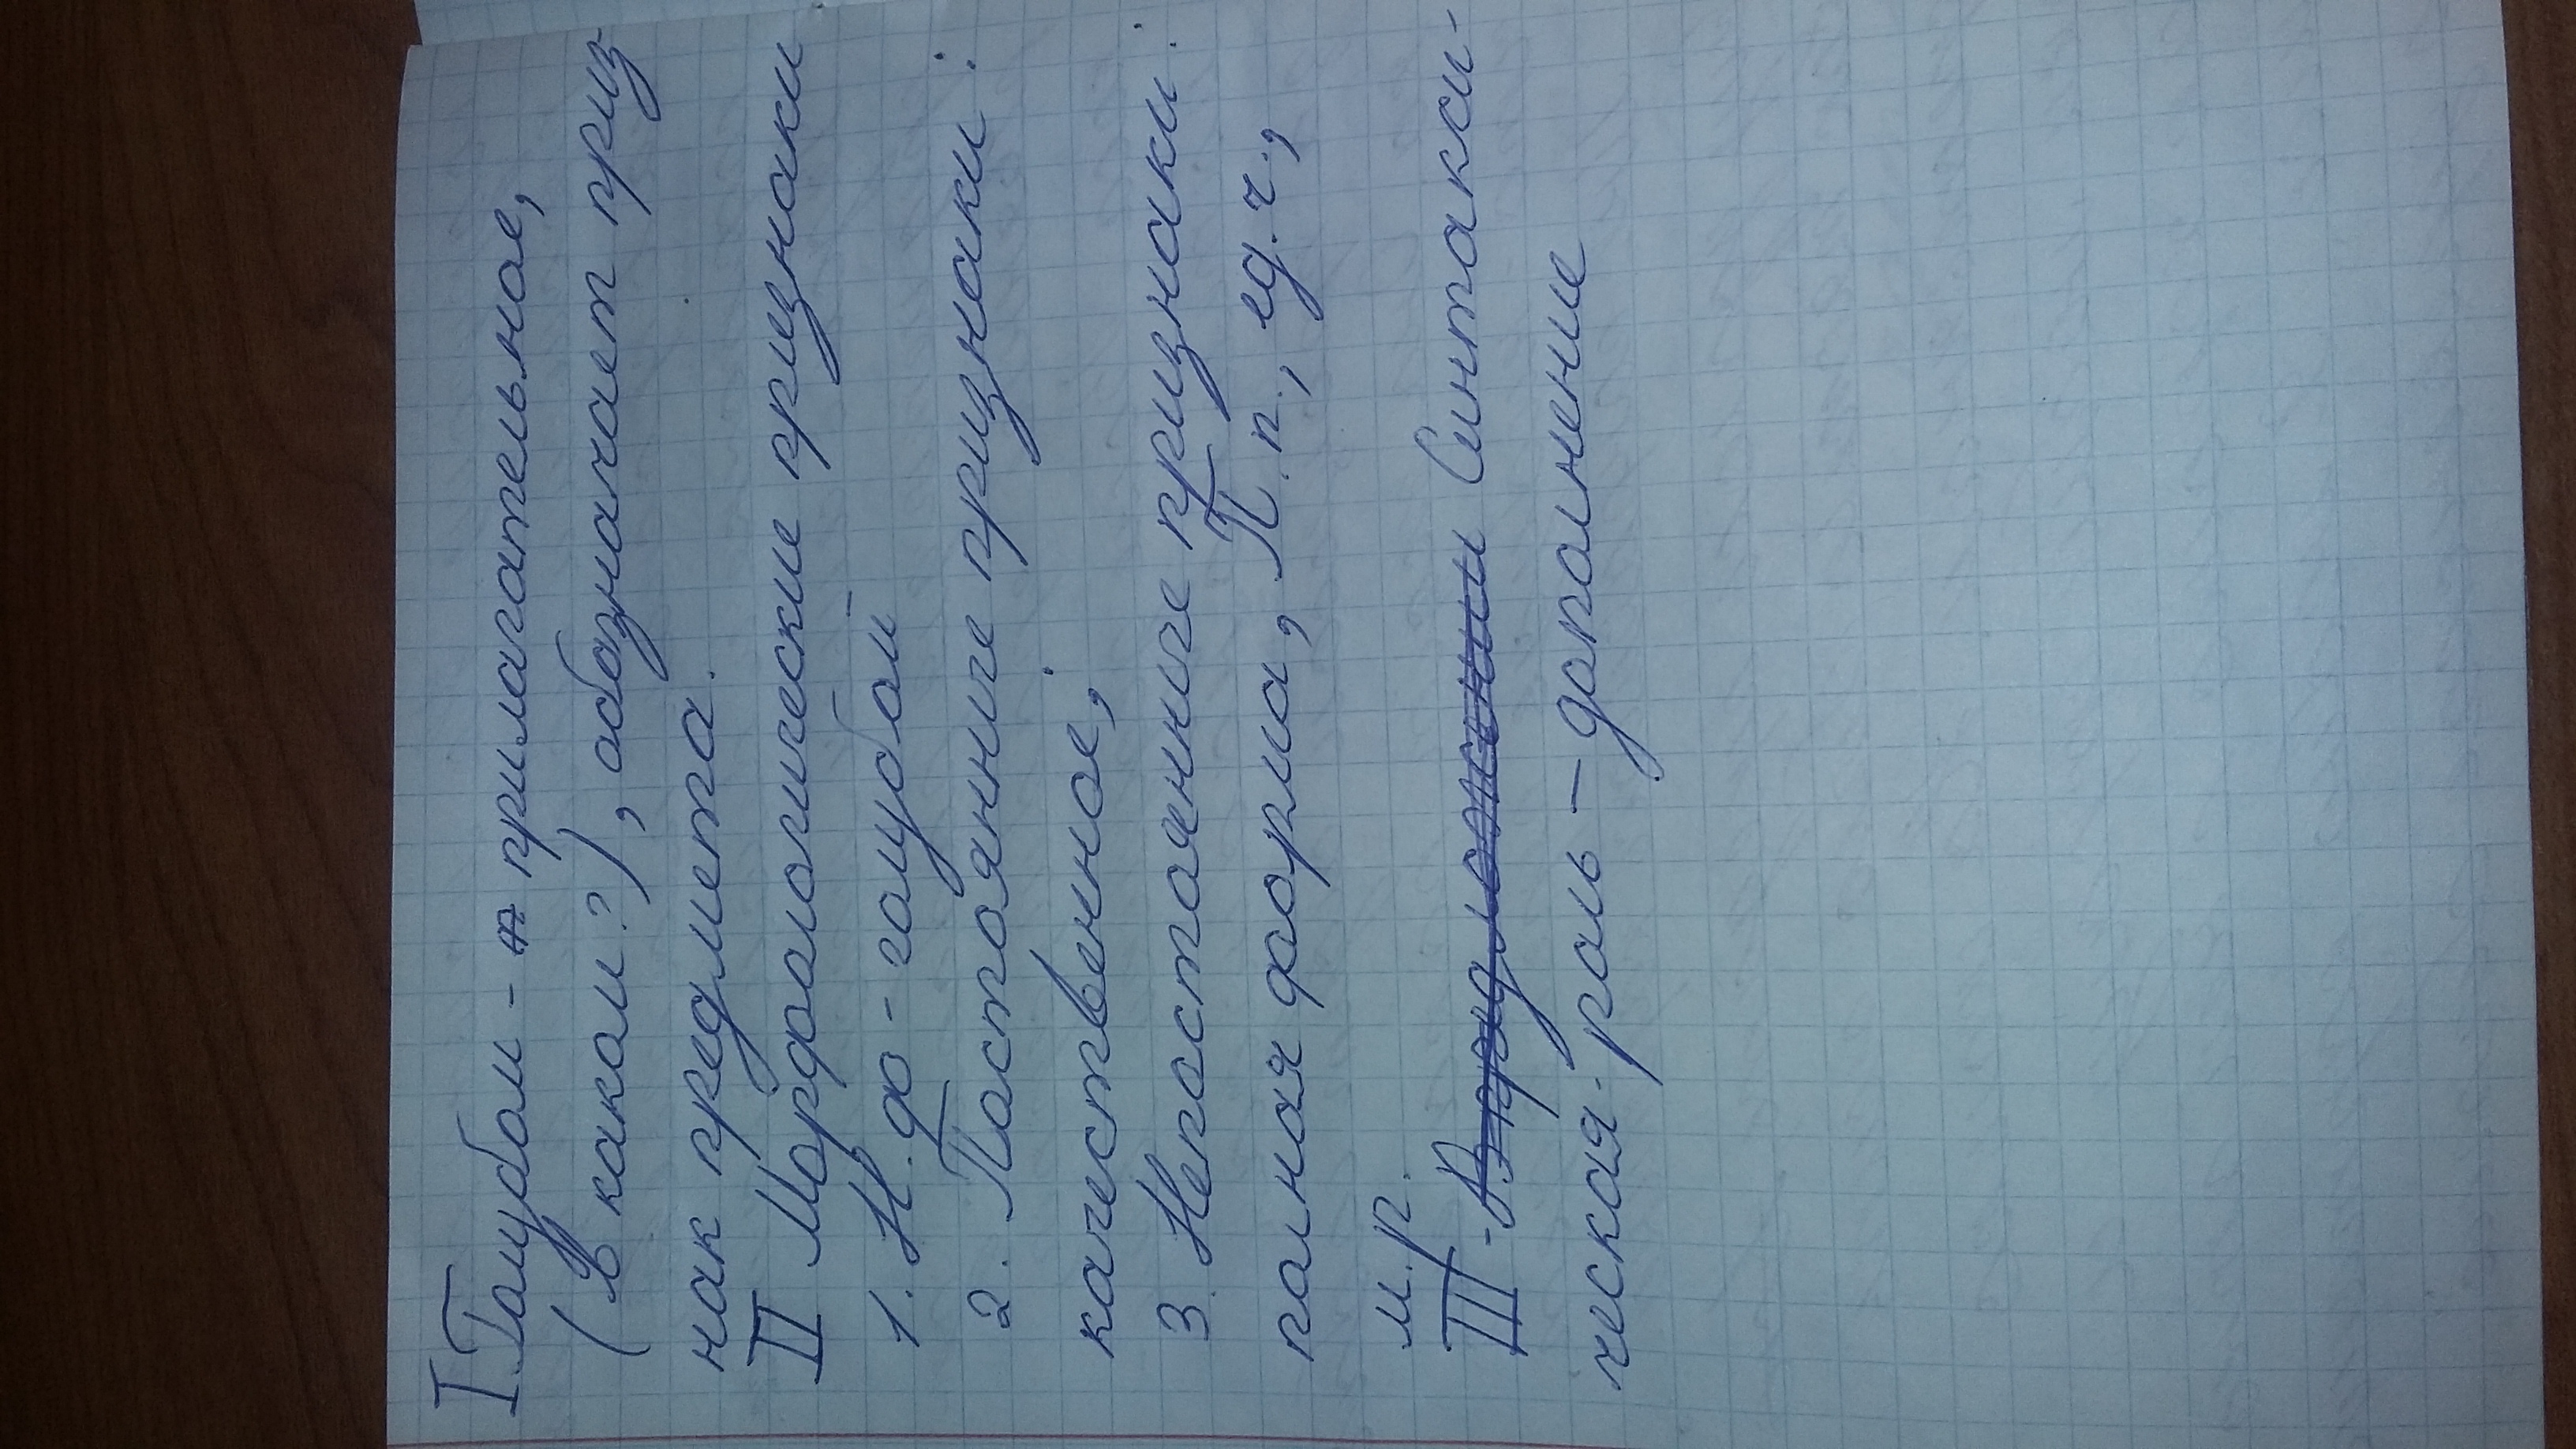 I. Голубом - прилагательное,
(в каком?), обозначает приз
нак предмета.
II Морфологические признаки
1. Н.ф - голубой
2. Постоянные признаки:
качественное;
3. Непостоянные признаки:
полная форма, П.п., ед.ч.,
м.р.
III - Синтакси-
ческая роль - дополнение